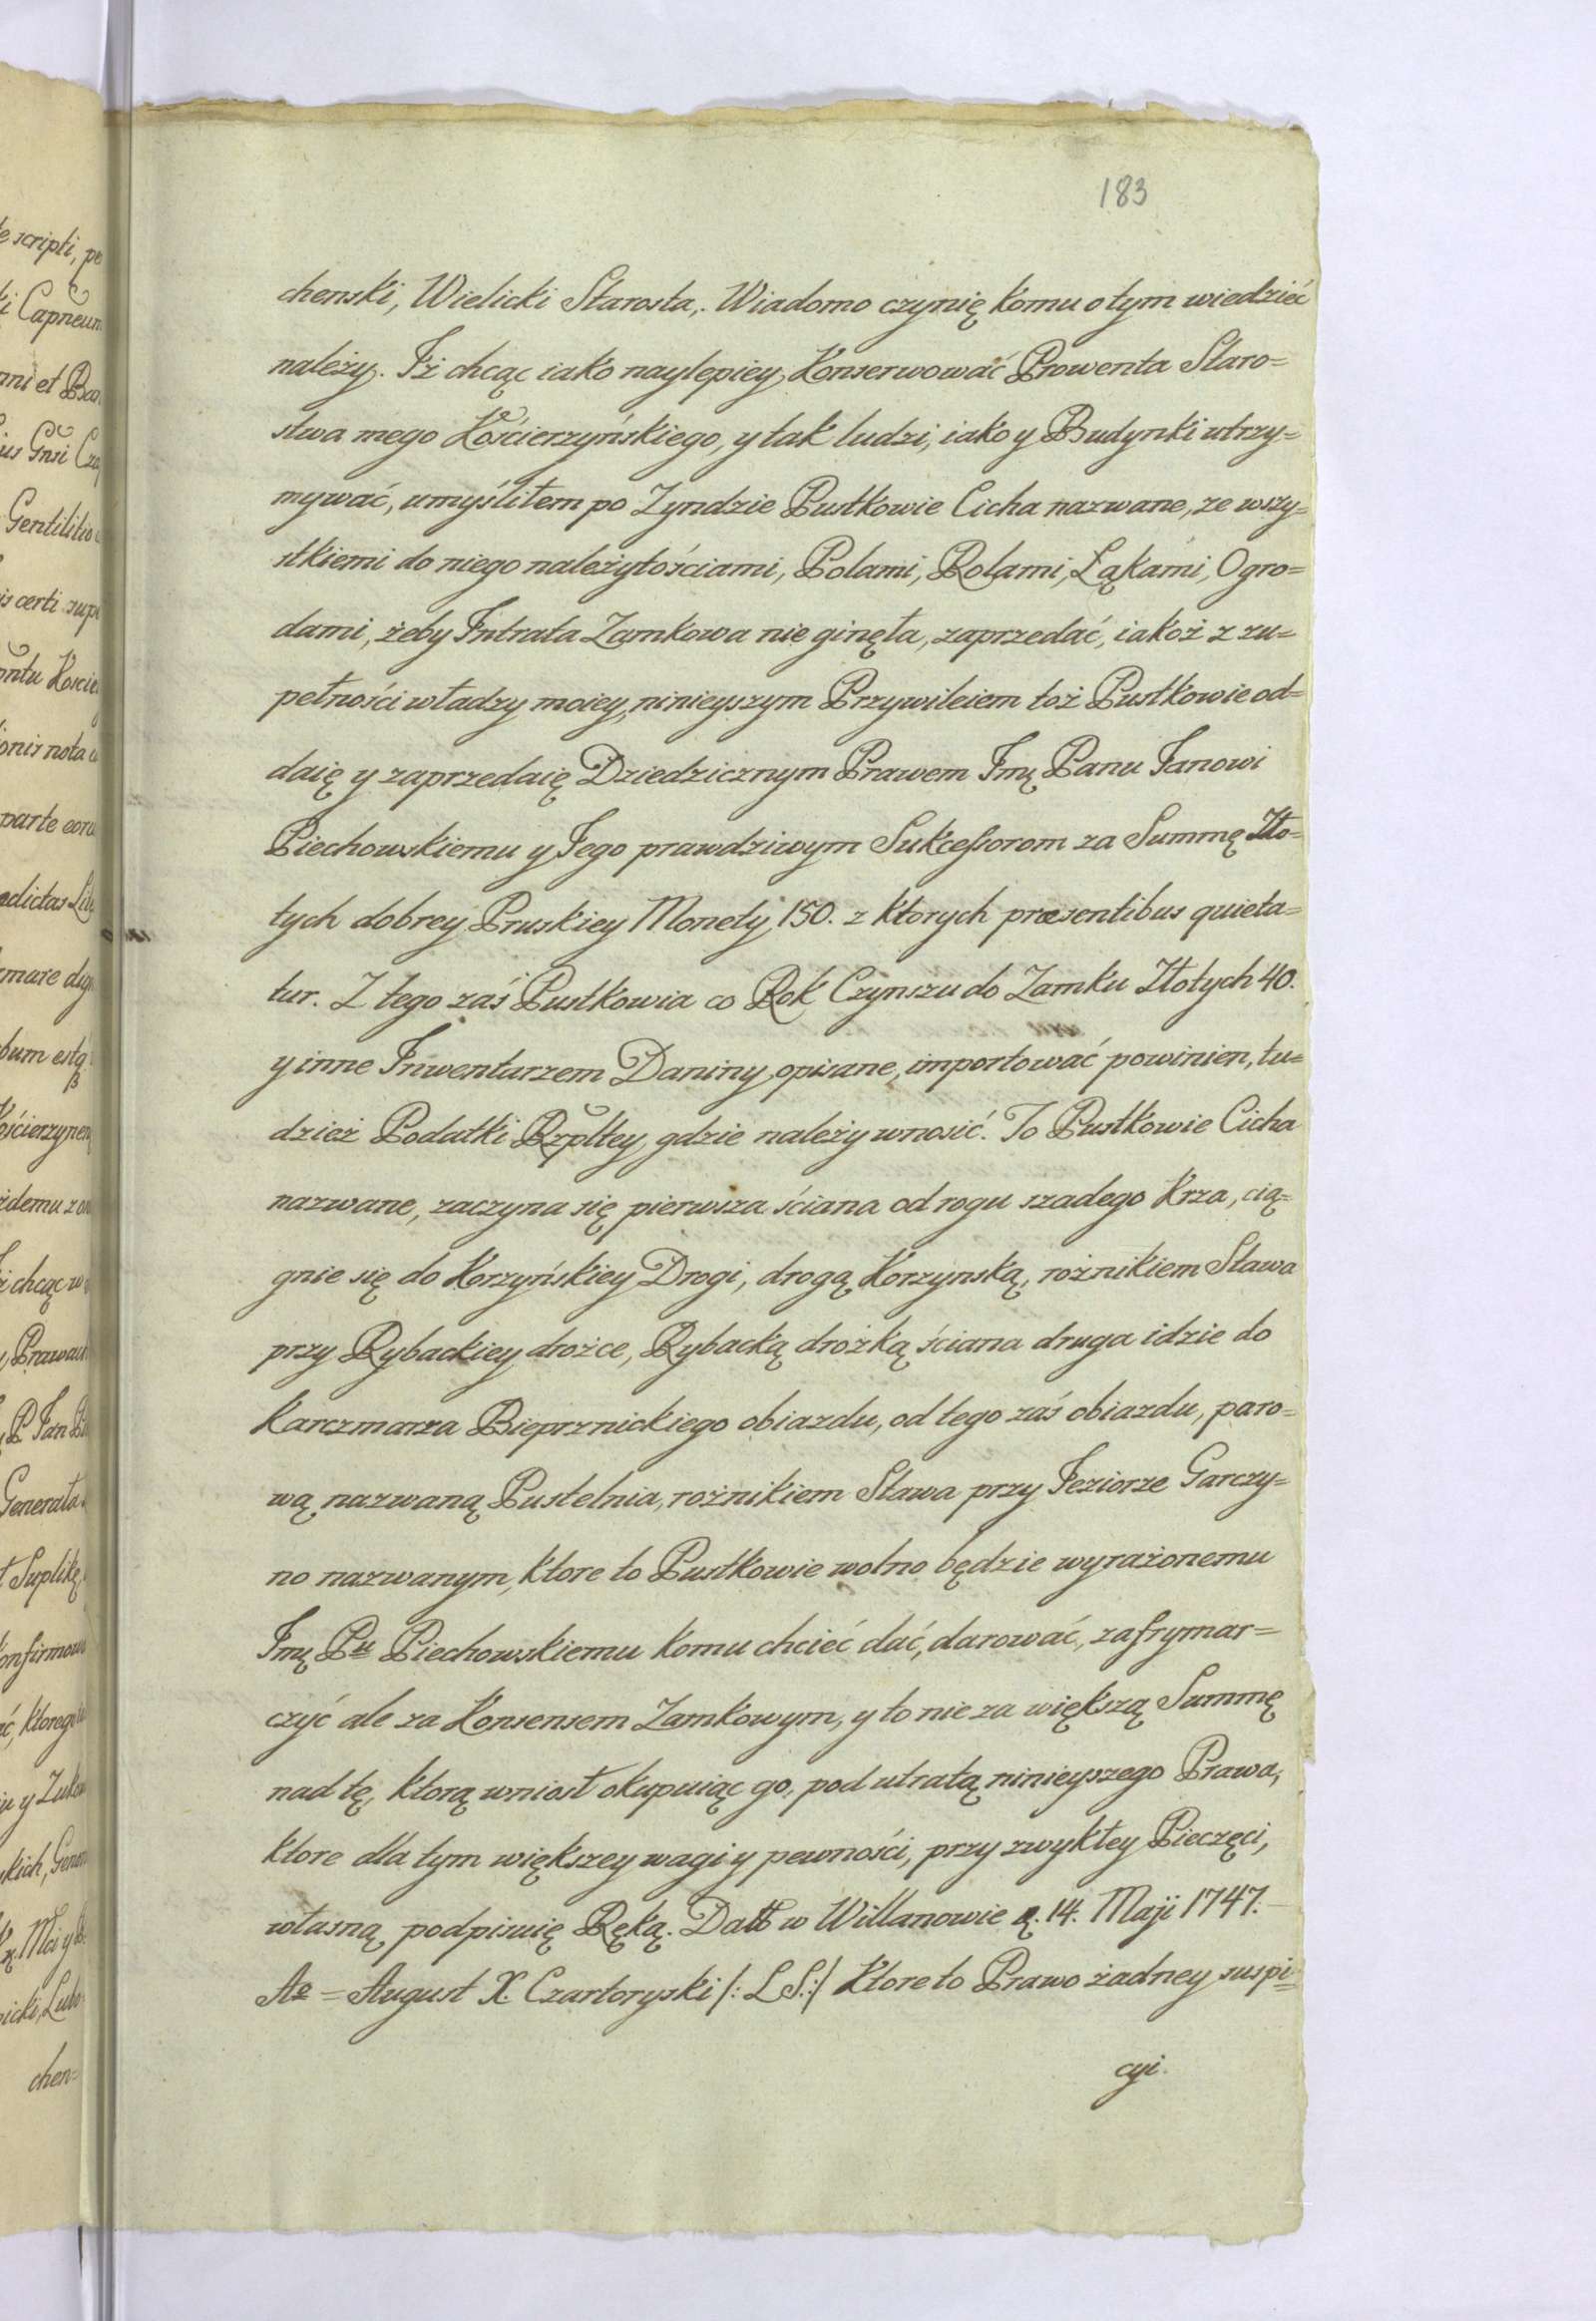 183
chenski, Wielicki Starosta,. Wiadomo czynię komu o tym wiedzieć
należy. Iż chcąc iako naylepiey Konserwować Prowenta Staro=
stwa mego Kościerzyńskiego, y tak ludzi, iako y Budynki utrzy=
mywać, umyśliłem po Zyndzie Pustkowie Cicha nazwane, ze wszy=
stkiemi do niego należytościami, Polami, Rolami, Łąkami, Ogro=
dami, żeby Intrata Zamkowa nie ginęła, zaprzedać, iakoż z zu=
pełności władzy moiey, ninieyszym Przywileiem toż Pustkowie od=
daię y zaprzedaię Dziedzicznym Prawem Imę Panu Janowi
Piechowskiemu y Jego prawdziwym Sukceſsorom za Summę Zło=
tych dobrey Pruskiey Monety 150. z ktorych præsentibus quieta=
tur. Z tego zaś Pustkowia co Rok Czynszu do Zamku Złotych 40.
y inne Inwentarzem Daniny opisane, importować powinien, tu=
dzież Podatki Rzpltey, gdzie należy wnosić. To Pustkowie Cicha
nazwane, zaczyna się pierwsza ściana od rogu szadego Krza, cią=
gnie się do Korzyńskiey Drogi, drogą Korzynską, rożnikiem Stawa
przy Rybackiey drożce, Rybacką drożką ściana druga idzie do
Karczmarza Bieprznickiego obiazdu, od tego zaś obiazdu, paro=
wą nazwaną Pustelnia, rożnikiem Stawa przy Jeziorze Garczy=
no nazwanym, ktore to Pustkowie wolno będzie wyrażonemu
Imę Pu Piechowskiemu komu chcieć dać, darować, zafrymar=
czyć ale za Konsensem Zamkowym, y to nie za większą Summę
nad tę, ktorą wniosł okupuiąc go, pod utratą ninieyszego Prawa,
ktore dla tym większey wagi y pewności, przy zwykłey Pieczęci,
własną podpisuię Ręką. Datt w Willanowie d. 14. Maji 1747.
Ao = August X. Czartoryski /: L S.:/ Ktore to Prawo żadney suspi=
cyi.